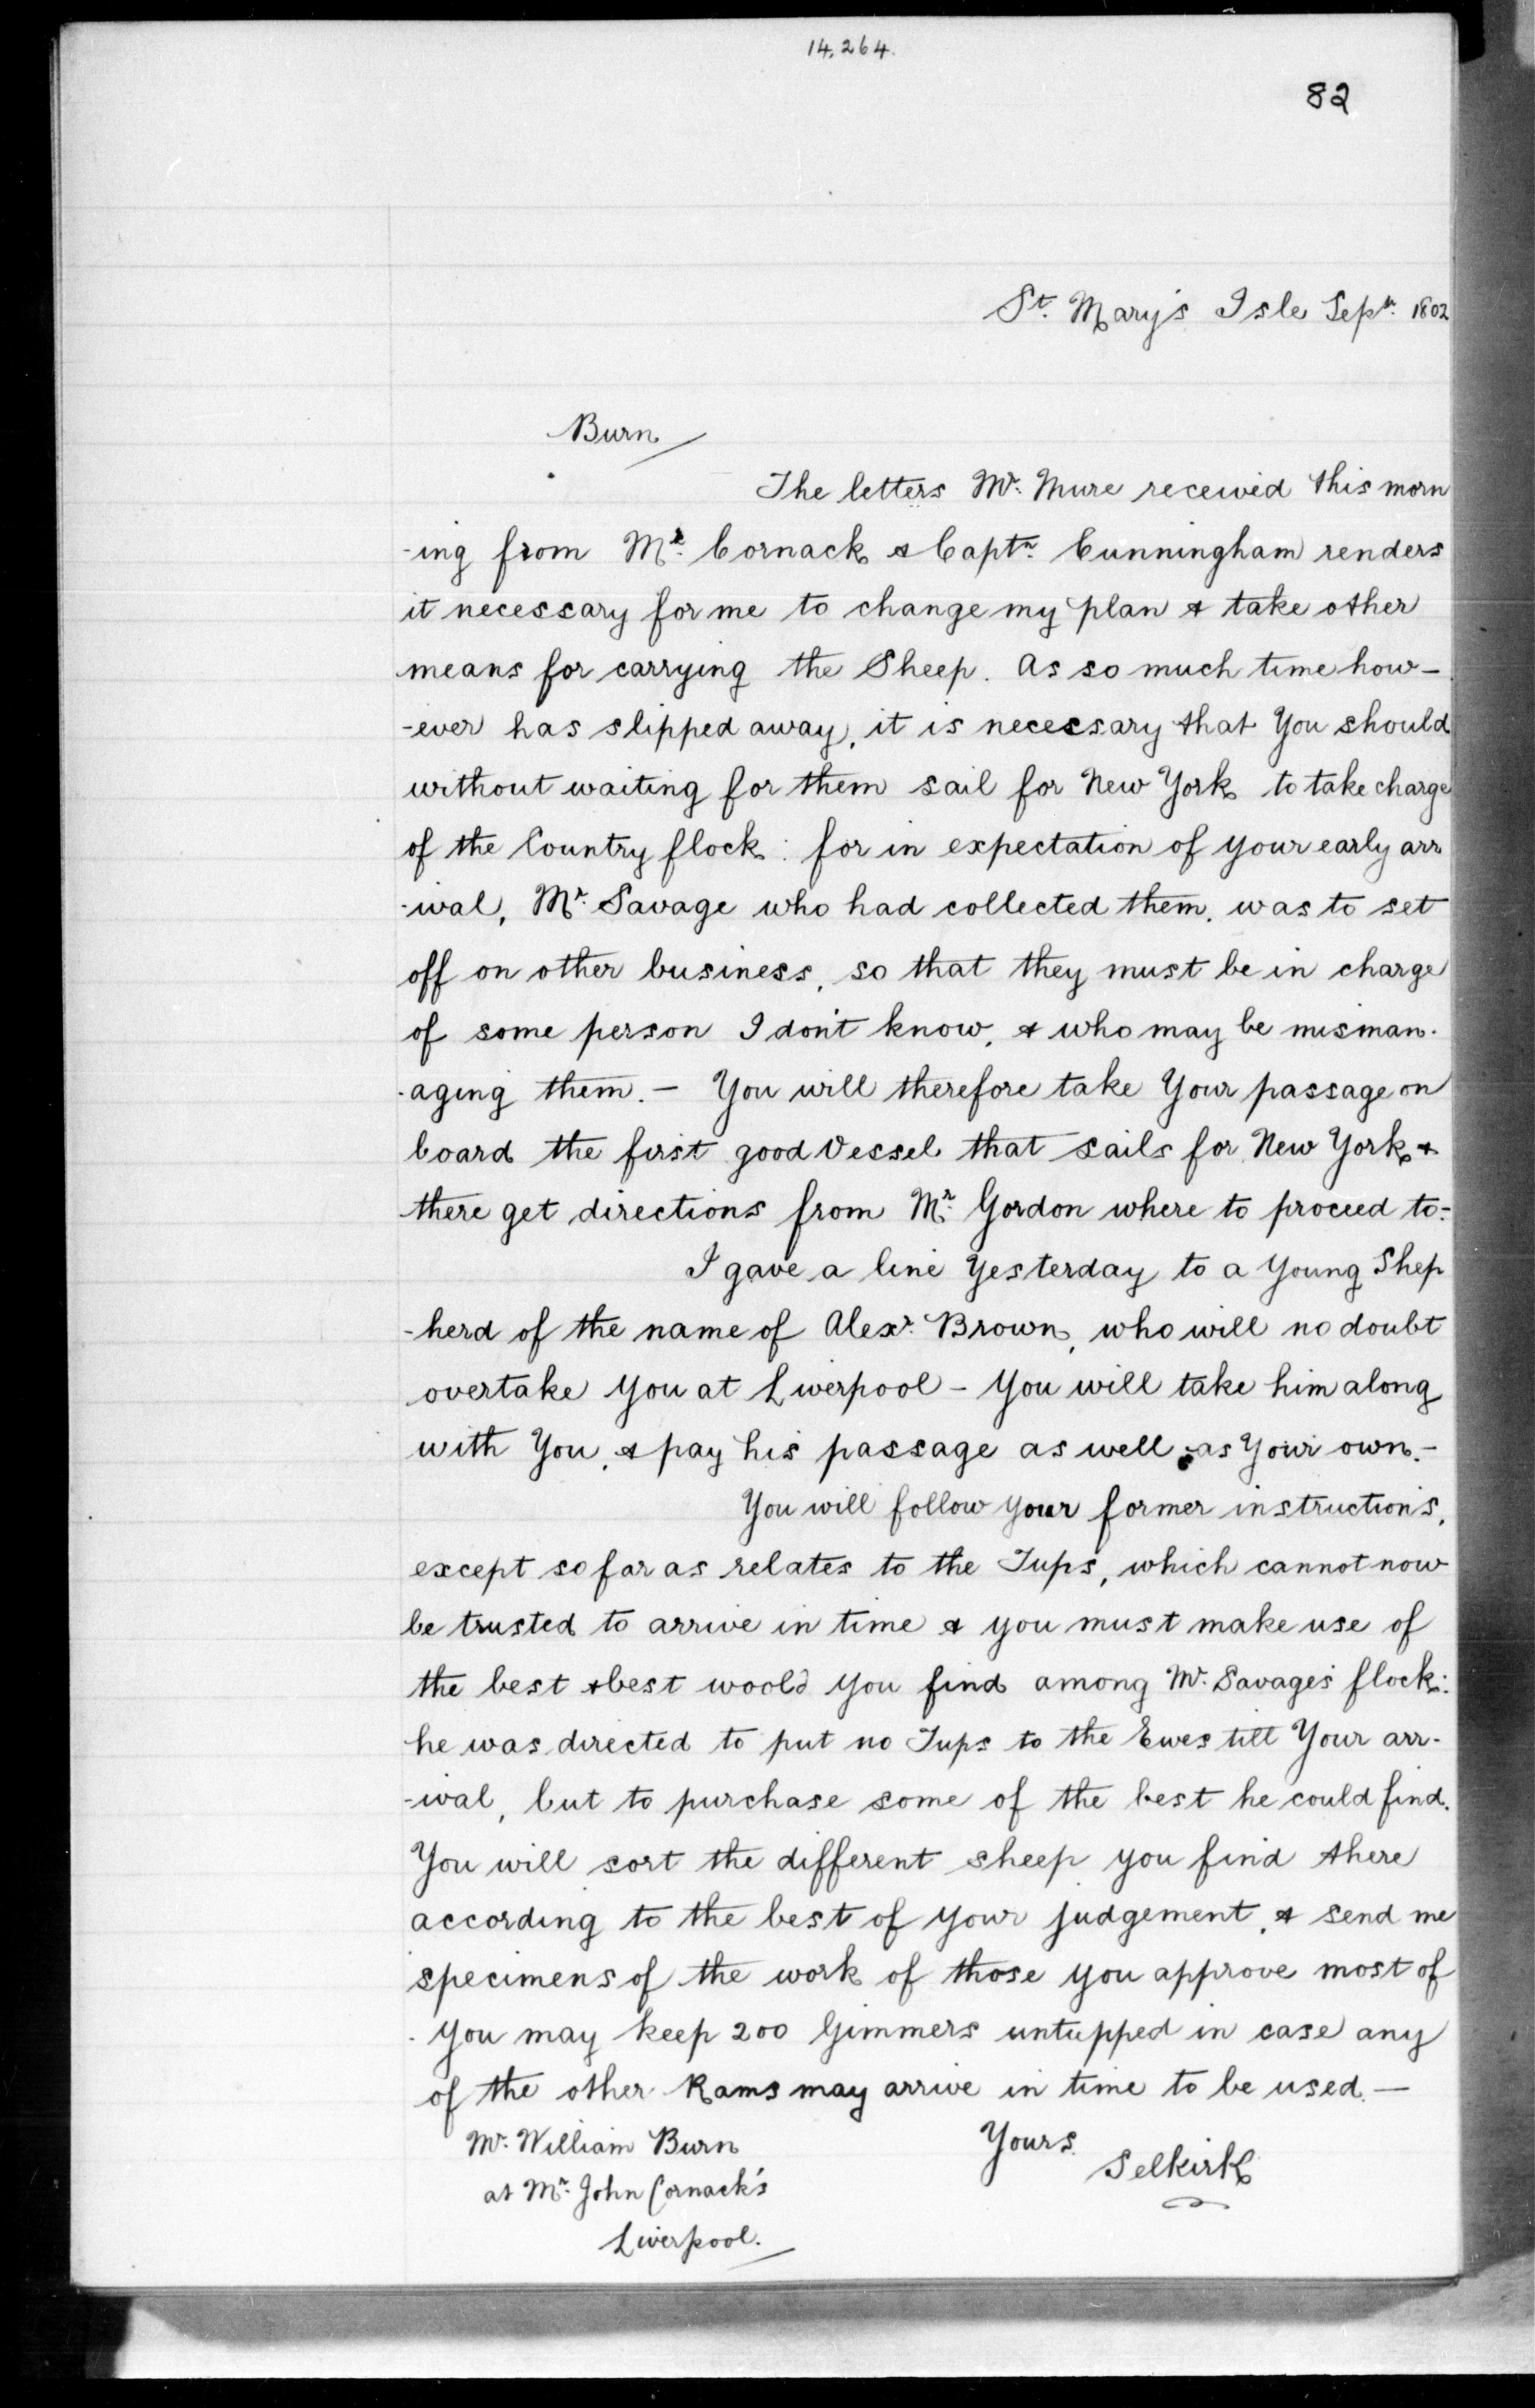 14,264.
82
St. Mary's Isle Septr. 1802
Burn
The letters Mr. Mure received this morn
-ing from Mr. Cornack & Captn. Cunningham renders
it necessary for me to change my plan & take other
means for carrying the Sheep. As so much time how-
-ever has slipped away, it is necessary that You should
without waiting for them sail for New York to take charge
of the Country flock: for in expectation of your early arr
-ival, Mr. Savage who had collected them, was to set
off on other business, so that they must be in charge
of some person I don't know, & who may be misman-
-aging them. - You will therefore take Your passage on
board the first good Vessel that sails for New York &
there get directions from Mr. Gordon where to proceed to:-
I gave a line Yesterday to a Young Shep
-herd of the name of Alexr. Brown, who will no doubt
overtake You at Liverpool - You will take him along
with You, & pay his passage as well as Your own. -
You will follow your former instructions,
except so far as relates to the Tups, which cannot now
be trusted to arrive in time & you must make use of
the best & best woold You find among Mr. Savage's flock:
he was directed to put no Tups to the Ewes till Your arr-
-ival, but to purchase some of the best he could find.
You will sort the different sheep you find there
according to the best of Your judgement, & send me
specimens of the work of those you approve most of
- You may keep 200 Gimmers untupped in case any
of the other Rams may arrive in time to be used. -
Yours
Selkirk
Mr. William Burn
at Mr. John Cornack's
Liverpool.